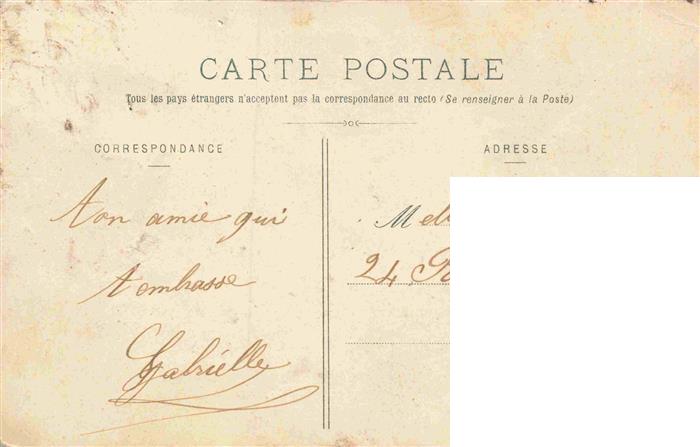 CARTE POSTALE
Tous les pays étrangers n'acceptent pas la correspondance au recto (Se renseigner à la Poste)
CORRESPONDANCE
ADRESSE
ton amie qui
t'embrasse
Gabrielle
M
24